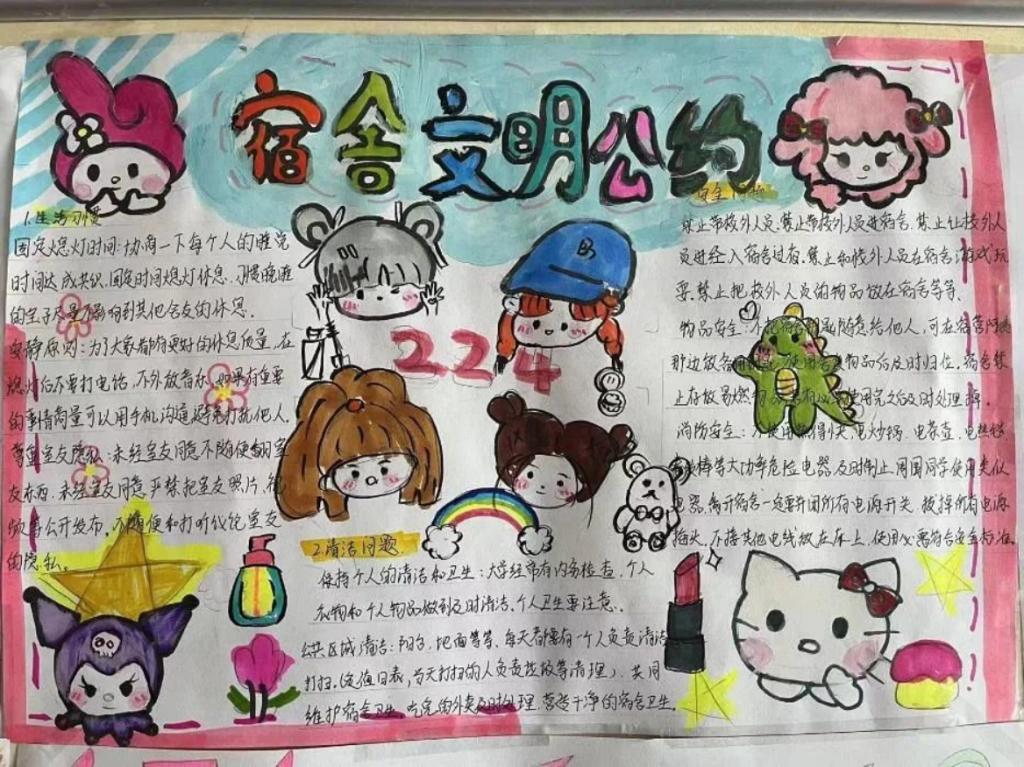 宿舍文明公约
224
B
1.生活习惯
固定熄灯时间:协商一下每个人的睡觉
时间达成共识,固定时间熄灯休息.习惯晚睡
的室子尽量不影响到其他舍友的休息.
安静原则:为了大家都有更好的休息质量,在
熄灯后不要打电话,不外放音乐,如果有重要
的事情商量可以用手机沟通避免打扰他人.
尊重室友隐私:未经室友同意不随便翻室
友东西.未经室友同意严禁把室友照片,视
频等公开发布.不随便和打听议论室友
的隐私.
2.清洁问题
保持个人的清洁和卫生:大学经常有内务检查,个人
衣物和个人物品做到及时清洁,个人卫生要注意.
公共区域清洁:阳台,地面等等,每天都要有一个人负责清洁
打扫.(值日表,当天打扫的人负责垃圾等清理),共同
维护宿舍卫生,吃完的外卖及时处理.营造干净的宿舍卫生.
安全问题
禁止带校外人员.禁止带校外人员进宿舍.禁止让校外人
员进入宿舍过夜.禁止和校外人员在宿舍游戏玩
耍.禁止把校外人员的物品放在宿舍等等.
物品安全:不把宿舍钥匙随意给他人,可在宿管阿姨
那边放备用钥匙,使用后物品后及时归位,宿舍禁
止存放易燃物 使用完之后及时处理掉.
消防安全:不使用热得快,电炒锅.电茶壶.电热毯
棒等大功率危险电器.及时制止周围同学使用类似
电器.离开宿舍一定要关闭所有电源开关.拔掉所有电源
插头.不接其他电线放在床上.使用必需符合安全标准.